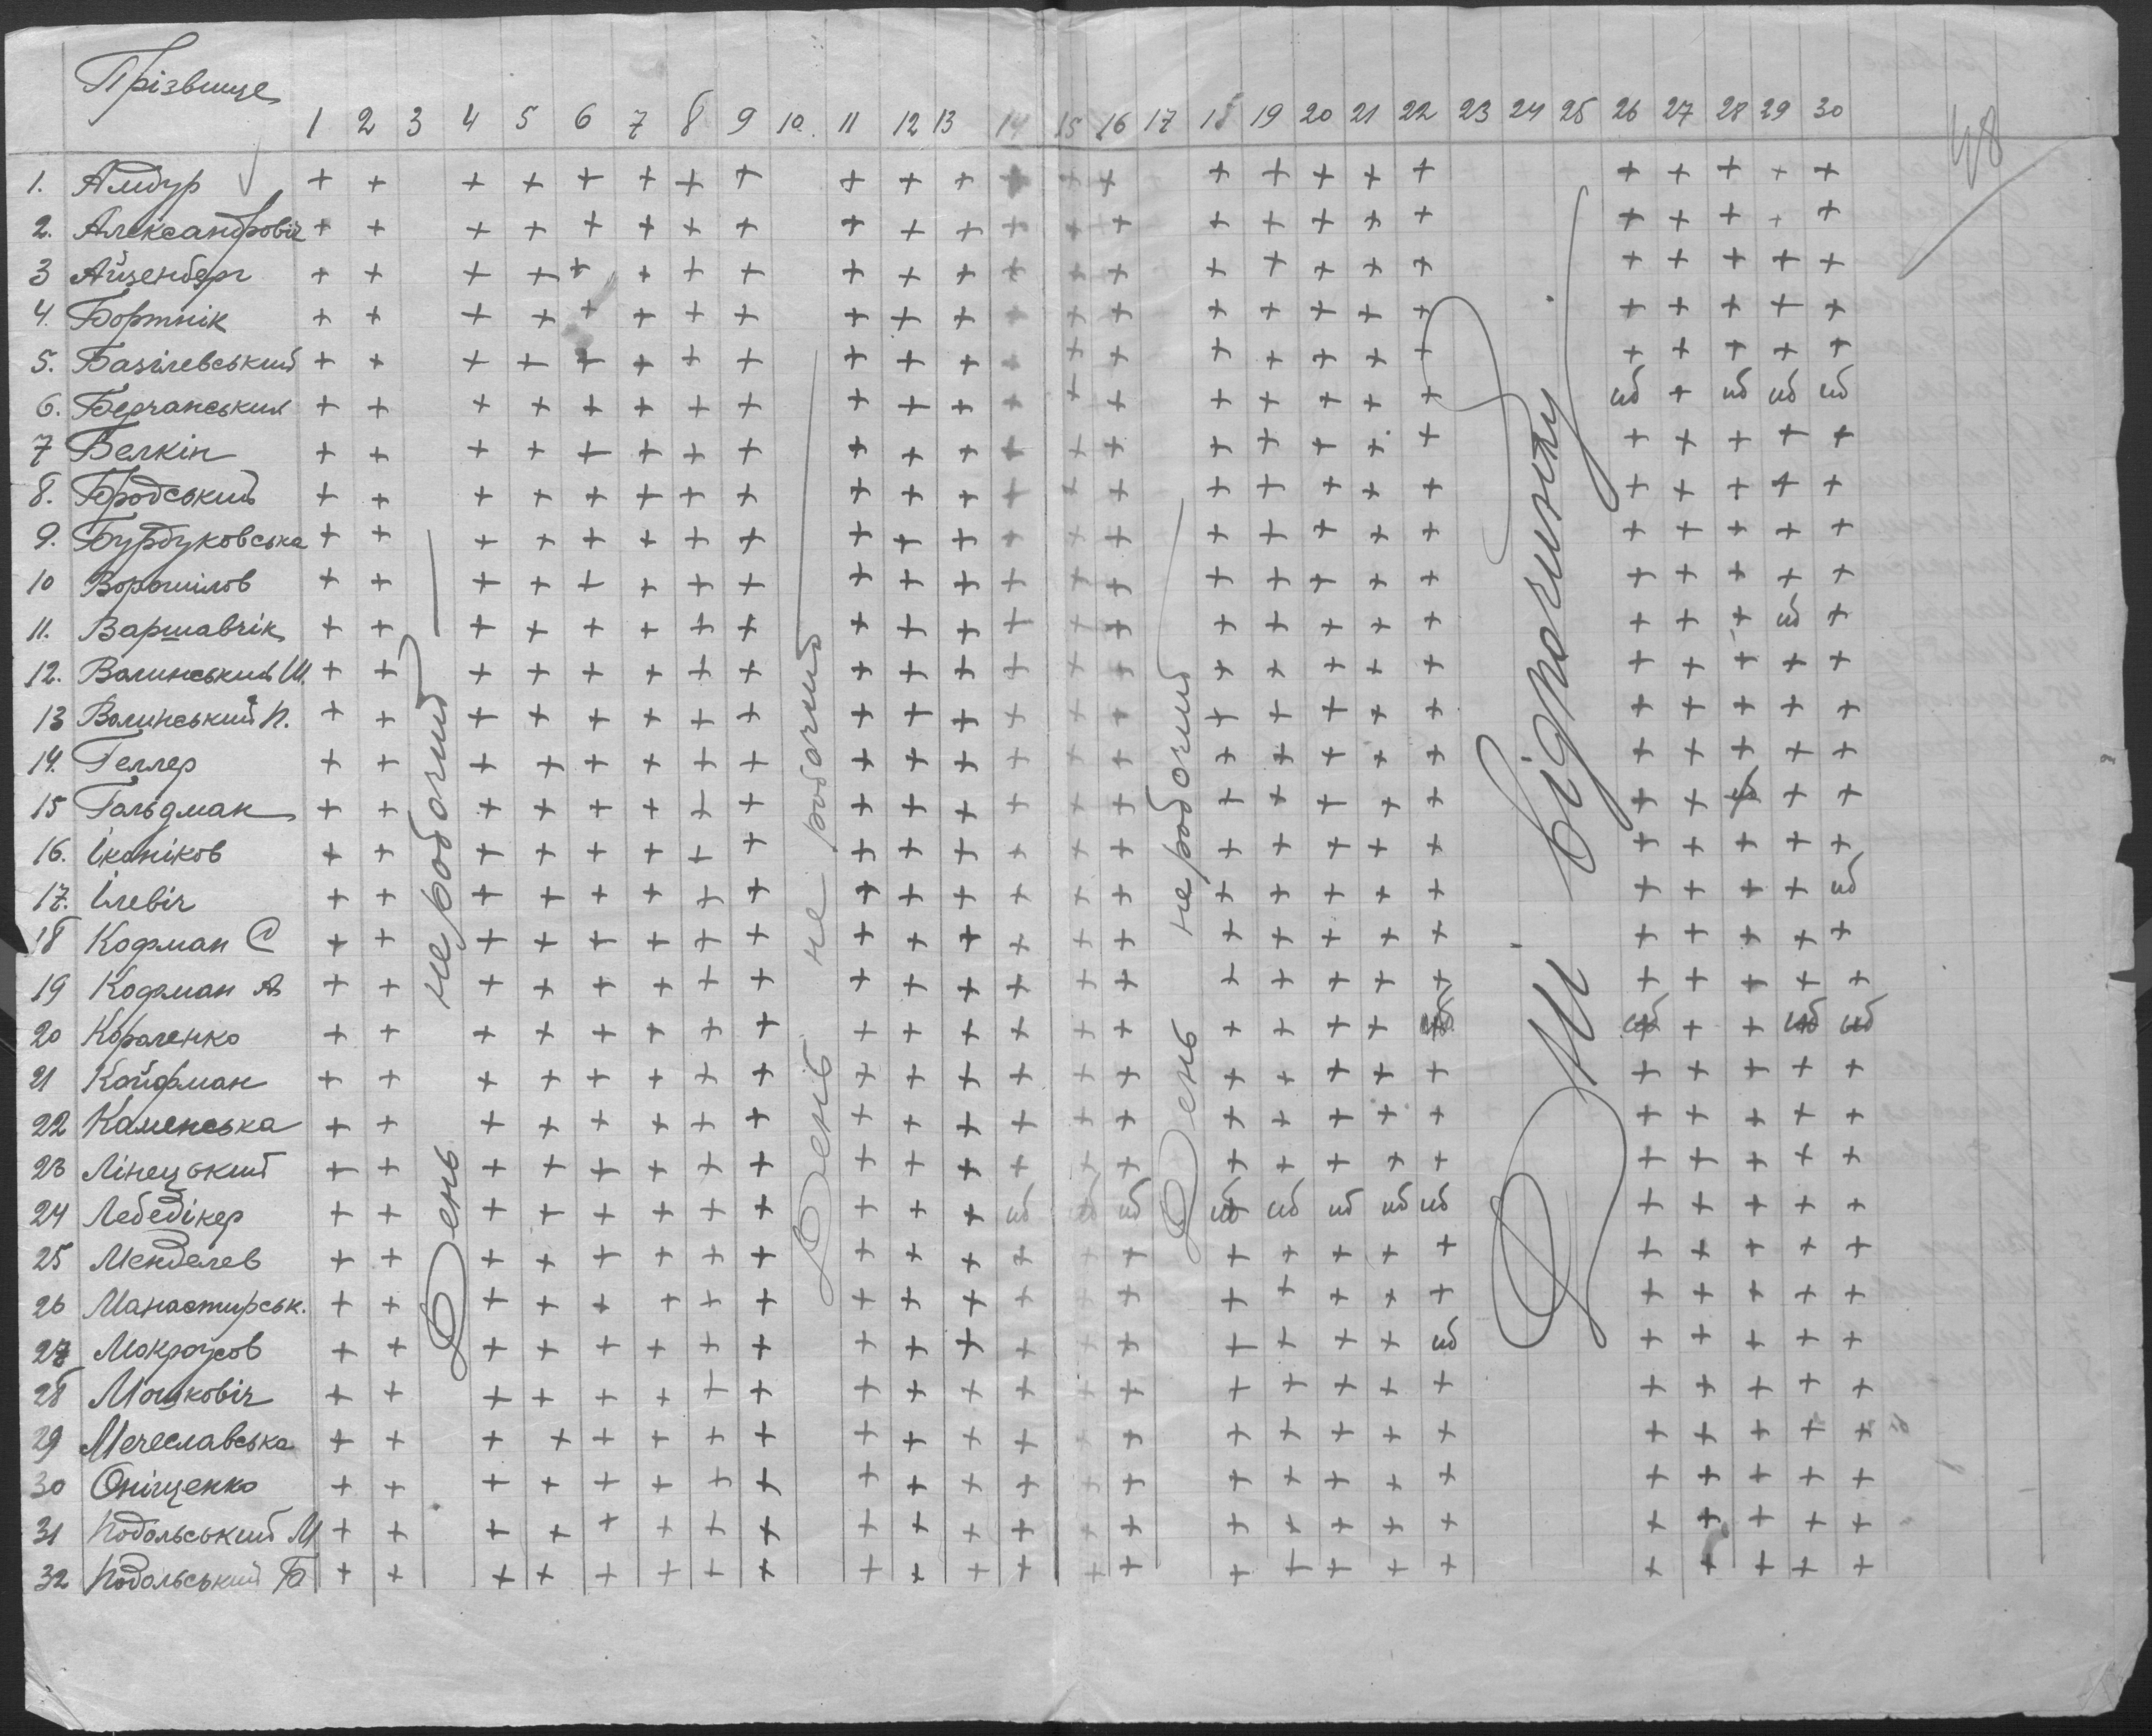 Прізвище 1 2 3 4 5 6 7 8 9 10. 11 12 13 14 15 16 17 18 19 20 21 22 23 24 25 26 27 28 29 30
48
1. Амбур + + + + + + + + + + + + + + + + + + + + + + + +
2. Александровіч + + + + + + + + + + + + + + + + + + + + + + + +
3 Айзенберг + + + + + + + + + + + + + + + + + + + + + + + +
4. Бортнік + + + + + + + + + + + + + + + + + + + + + + + +
5. Базілевський + + + + + + + + + + + + + + + + + + + + + + + +
6. Берчанський + + + + + + + + + + + + + + + + + + + нб + нб нб нб
7 Белкін + + + + + + + + + + + + + + + + + + + + + + + +
8. Бродський + + + + + + + + + + + + + + + + + + + + + + + +
9. Бурбуковська + + + + + + + + + + + + + + + + + + + + + + + +
10 Ворошілов + + + + + + + + + + + + + + + + + + + + + + + +
11. Варшавчік + + + + + + + + + + + + + + + + + + + + + + нб +
12. Волинський Ш. + + + + + + + + + + + + + + + + + + + + + + + +
13 Волинський П. + + + + + + + + + + + + + + + + + + + + + + + +
14. Геллер + + + + + + + + + + + + + + + + + + + + + + + +
15 Гольдман + + + + + + + + + + + + + + + + + + + + + + +
16. Іконіков + + + + + + + + + + + + + + + + + + + + + + + +
17. Ілевіч + + + + + + + + + + + + + + + + + + + + + + + нб
18 Кофман С + + + + + + + + + + + + + + + + + + + + + + + +
19 Кофман А + + + + + + + + + + + + + + + + + + + + + + + +
20 Короленко + + + + + + + + + + + + + + + + + + нб нб + + нб нб
21 Койфман + + + + + + + + + + + + + + + + + + + + + + + +
22 Каменська + + + + + + + + + + + + + + + + + + + + + + + +
23 Лінецький + + + + + + + + + + + + + + + + + + + + + + + +
24 Лебедікер + + + + + + + + + + + нб нб нб нб нб нб нб нб + + + + +
25 Менделев + + + + + + + + + + + + + + + + + + + + + + + +
26 Манастирськ. + + + + + + + + + + + + + + + + + + + + + + + +
27 Мокроусов + + + + + + + + + + + + + + + + + + нб + + + + +
28 Мошковіч + + + + + + + + + + + + + + + + + + + + + + + +
29 Мечеславська + + + + + + + + + + + + + + + + + + + + + + + +
30 Оніщенко + + + + + + + + + + + + + + + + + + + + + + + +
31 Подольський М + + + + + + + + + + + + + + + + + + + + + + + +
32 Подольський Б + + + + + + + + + + + + + + + + + + + + + + + +
День не робочий
День не робочий
День не робочий
Дні відпочинку